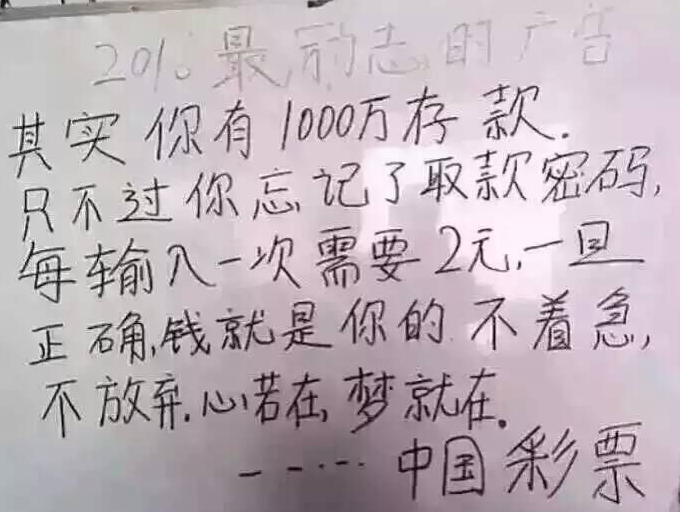 201. 最励志的广告
其实你有1000万存款.
只不过你忘记了取款密码,
每输入一次需要2元,一旦
正确,钱就是你的.不着急,
不放弃.心若在,梦就在.
-----中国彩票